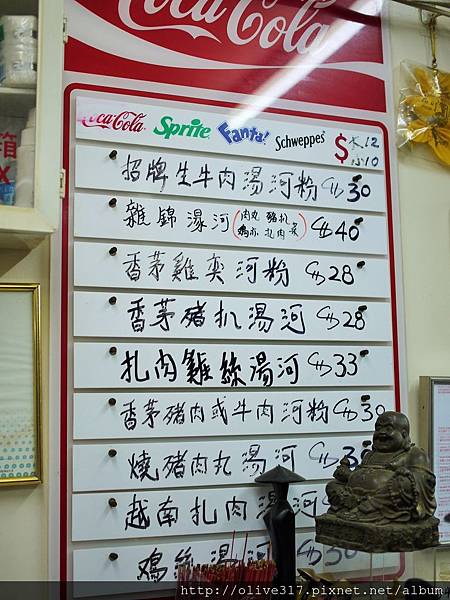 Coca-Cola
Coca-Cola Sprite Fanta! Schweppes $大12
小10
招牌生牛肉湯河粉 30
雜錦湯河(肉丸 豬扒 40
香茅雞夾河粉 28
香茅豬扒湯河 28
扎肉雞絲湯河 33
香茅豬肉或牛肉河粉 30
燒豬肉丸湯河
越南扎肉湯河
鷄絲湯河 30
http://olive317.pixnet.net/album